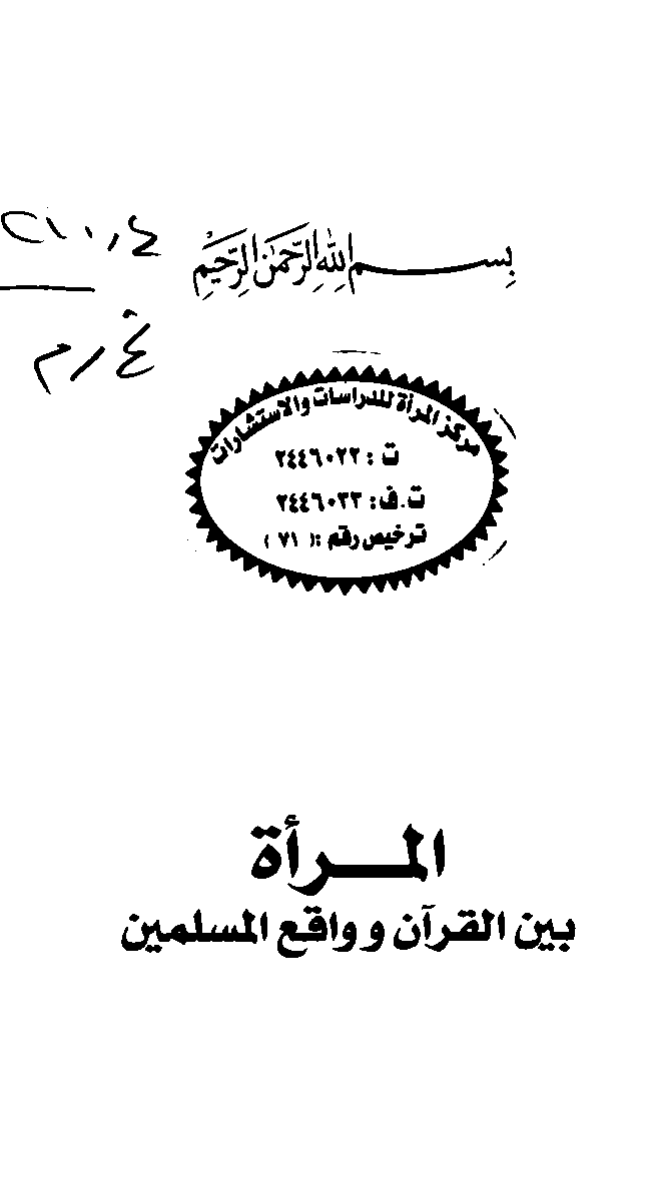 بِسْمِ اللهِ الرَّحْمٰنِ الرَّحِيْمِ
مركز المرأة للدراسات والاستشارات
ت : ٢٤٤٦٠٢٢
ت.ف: ٢٤٤٦٠٣٣
ترخيص رقم :( ٧١ )
المـــرأة
بين القرآن و واقع المسلمين